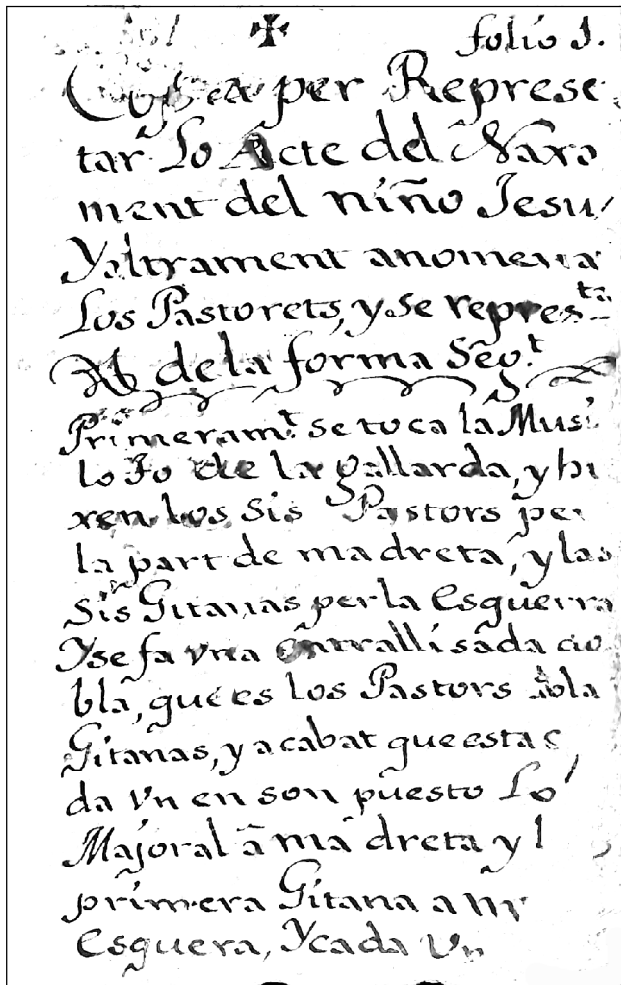 folio 1.
per Represe
tar Lo Acte del Naxa
ment del niño Jesu
Y altrament anomena
Los Pastorets, y se represta
de la forma Segt
Primeramt se toca la Musi
lo so de la gallarda, y hi
xen los sis Pastors per
la part de ma dreta, y las
sis Gitanas per la Esquerra
Y se fa vna entrallisada do
bla, que es los Pastors ab la
Gitanas, y acabat que esta
da vn en son puesto Lo
Majoral a ma dreta y l
primera Gitana a
Esquera, Y cada Vn